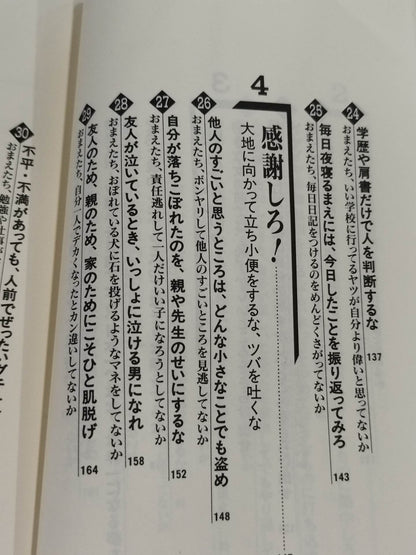 24 学歴や肩書だけで人を判断するな
おまえたち、いい学校に行ってるヤツが自分より偉いと思ってないか
137
25 毎日夜寝るまえには、今日したことを振り返ってみろ
おまえたち、毎日日記をつけるのをめんどくさがってないか
143
4 感謝しろ!
大地に向かって立ち小便をするな、ツバを吐くな
26 他人のすごいと思うところは、どんな小さなことでも盗め
おまえたち、ボンヤリして他人のすごいところを見逃してないか
148
27 自分が落ちこぼれたのを、親や先生のせいにするな
おまえたち、責任逃れして一人だけいい子になろうとしてないか
152
28 友人が泣いているとき、いっしょに泣ける男になれ
おまえたち、おぼれている犬に石を投げるようなマネをしてないか
158
29 友人のため、親のため、家のためにこそひと肌脱げ
おまえたち、自分一人でデカくなったとカン違いしてないか
164
30 不平・不満があっても、人前でぜったい
おまえたち、勉強や仕事が